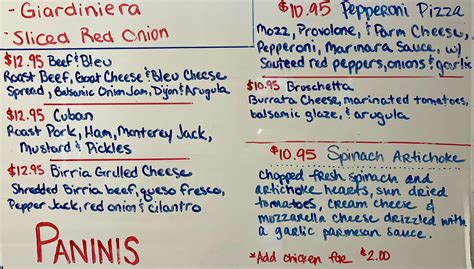 - Giardiniera
- Sliced Red Onion
$12.95 Beef & Bleu
Roast Beef, Goat Cheese & Bleu Cheese
Spread, Balsamic Onion Jam, Dijon & Arugula
$12.95 Cuban
Roast Pork, Ham, Monterey Jack,
Mustard & Pickles
$12.95 Birria Grilled Cheese
Shredded Birria beef, queso fresco,
Pepper Jack, red onion & cilantro
PANINIS
$10.95 Pepperoni Pizza
Mozz, Provolone, & Parm Cheese,
Pepperoni, Marinara Sauce, w/
Sauteed red peppers, onions & garlic
$10.95 Bruschetta
Burrata Cheese, marinated tomatoes,
balsamic glaze, & arugula
$10.95 Spinach Artichoke
chopped fresh spinach and
artichoke hearts, sun dried
tomatoes, cream cheese &
mozzarella cheese drizzled with
a garlic parmesan sauce.
*Add chicken for $2.00